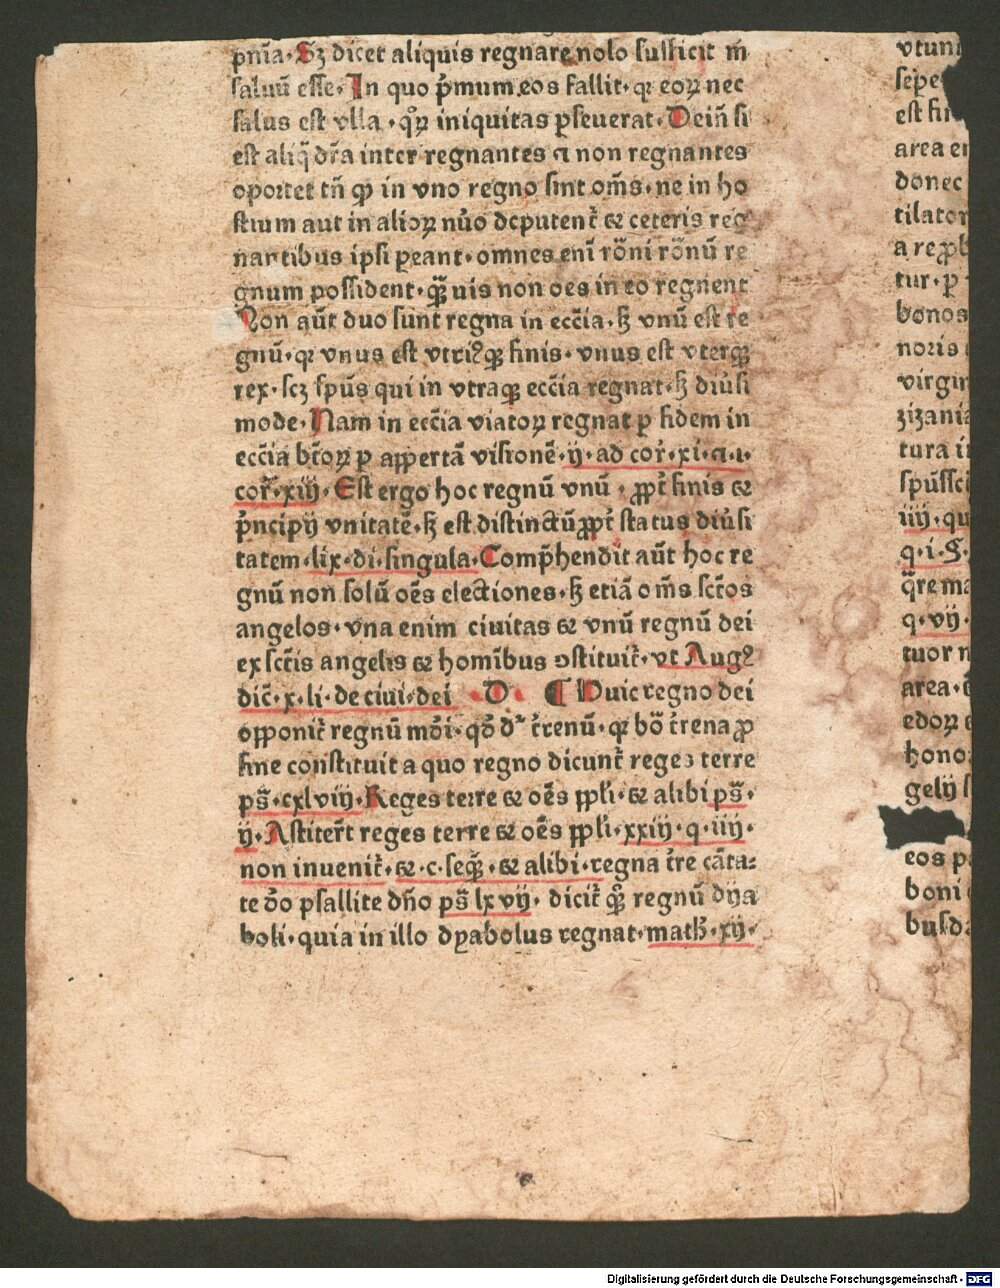 pñia·Sꝫ dicet aliquis regnare nolo sufficit m̄
saluū esse·In quo p̄mum eos fallit·qꝛ eoꝝ nec
salus est vlla·qͦꝝ iniquitas ꝑseuerat·Deiñ si
est aliq̄ dr̄a inter regnantes ⁊ non regnantes
oportet tñ ꝙ in vno regno sint om̄s·ne in ho
stium aut in alioꝝ nūo deputent᷑ & ceteris reg
nantibus ipsi ꝑeant·omnes eni᷑ rōni rōnū re
gnum possident·qꝫ̄uis non oēs in eo regnent
Non aūt duo sunt regna in eccīa·sꝫ vnū est re
gnū·qꝛ vnus est vtriꝰqꝫ finis·vnus est vterqꝫ
rex·scꝫ spūs qui in vtraqꝫ eccīa regnat·sꝫ diūsi
mode·Nam in eccīa viatoꝝ regnat ꝑ fidem in
eccīa bt̄oꝝ ꝑ appertā visionē·ij·ad cor᷑·xi·⁊·i·
cor᷑·xiij·Est ergo hoc regnū vnū·ꝓpt᷑ finis &
p̄ncipij vnitatē·sꝫ est distinctū ꝓpt᷑ status diūsi
tatem·lix·di·singula·Comp̄hendit aūt hoc re
gnū non solū oēs electiones·sꝫ etiā om̄s sct̄os
angelos·vna enim ciuitas & vnū regnū dei
ex sct̄is angelis & homībus ꝯstituit᷑·vt Augꝰ
dic̄·x·li·de ciui·dei · D · ¶ Huic regno dei
opponit᷑ regnū mōi·qđ dꝛ t᷑renū·qꝛ bō t᷑rena ꝓ
fine constituit a quo regno dicunt᷑ reges terre
ps̄·cxlviij·Reges terre & oēs ppl̄i·& alibi ps̄·
ij·Astiter̄t reges terre & oēs ppl̄i·xxiij·q·iiij·
non inuenit᷑·&·c·seqꝫ̄·& alibi·regna t᷑re cāta⸗
te dō psallite dño ps̄ lxvij·dicit᷑ qꝫ̄ regnū dya
boli·quia in illo dyabolus regnat·math·xij·
vtun
sepe
est fin
area en
donec
tilator
a reꝓb
tur·ꝑ
bonos
noris
virgin
zizania
tura in
spūssci
iiij·qu
q·i·S·
q̄re ma
q·vij·
tuor n
area·
edoꝝ
hono
gelij s
eos p
boni
busda
Digitalisierung gefördert durch die Deutsche Forschungsgemeinschaft - DFG